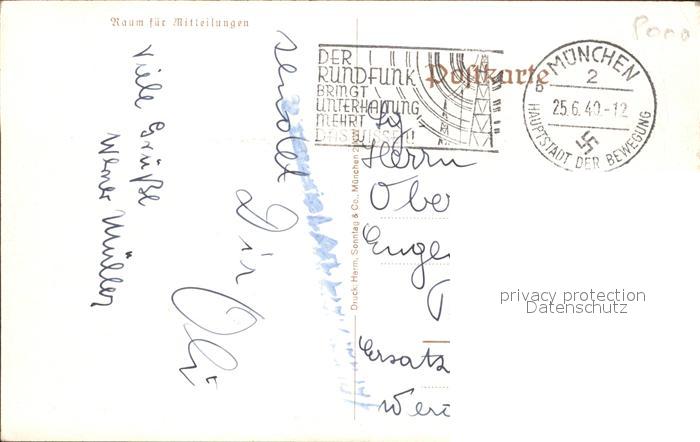 Raum für Mitteilungen
sendet
Dir
Viele Grüße
Werner Müller
DER
RUNDFUNK
BRINGT
UNTERHALTUNG
MEHRT
DAS WISSEN!
Postkarte
MÜNCHEN
2
B
25.6.40.-12
HAUPTSTADT DER BEWEGUNG
Herrn
Ober
Euge
Ersatz
Druck Herm. Sonntag & Co., München 2
privacy protection
Datenschutz